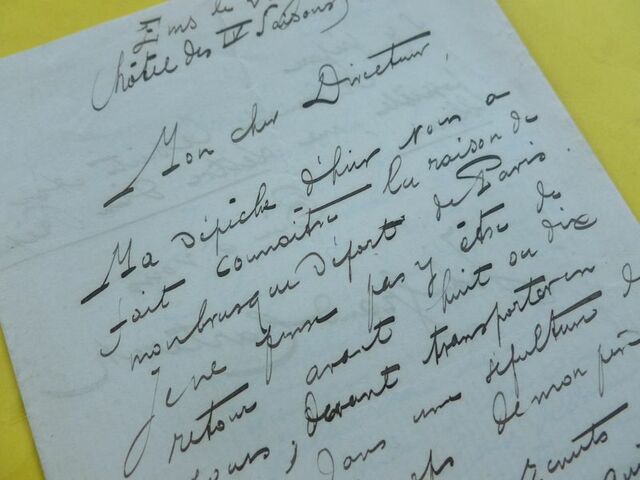 Ems le
(hôtel des IV Saisons)
Mon cher Directeur,
Ma dépêche d'hier vous a
fait connaître la raison de
mon brusque départ de Paris.
Je ne pense pas y être de
retour avant huit ou dix
jours, devant transporter en
dans une sépulture de
corps de mon père